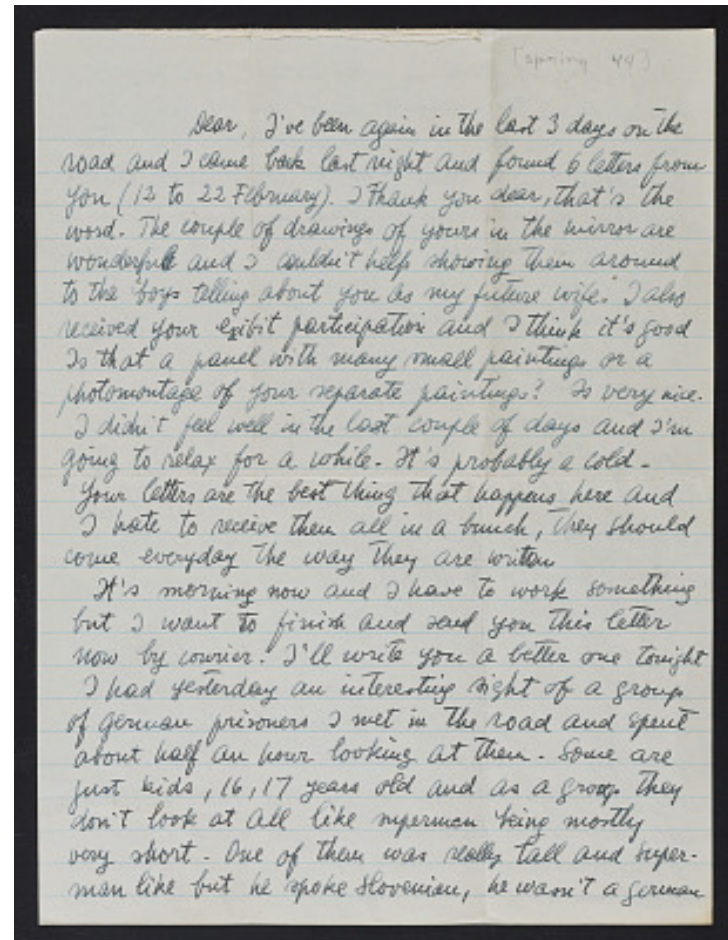 [spring 44]
Dear, I've been again in the last 3 days on the
road and I came back last night and found 6 letters from
you (12 to 22 February). I thank you dear, that's the
word. The couple of drawings of yours in the mirror are
wonderful and I couldn't help showing them around
to the "boys telling about you as my future wife." I also
received your exibit participation and I think it's good
Is that a panel with many small paintings or a
photomontage of your separate paintings? Is very nice.
I didn't feel well in the last couple of days and I'm
going to relax for a while. It's probably a cold.
Your letters are the best thing that happens here and
I hate to receive them all in a bunch, they should
come everyday the way they are written
It's morning now and I have to work something
but I want to finish and send you this letter
now by courier. I'll write you a better one tonight
I had yesterday an interesting sight of a group
of german prisoners I met in the road and spent
about half an hour looking at them. Some are
just kids, 16, 17 years old and as a group they
don't look at all like supermen being mostly
very short. One of them was really tall and super-
man like but he spoke Slovenian, he wasn't a german